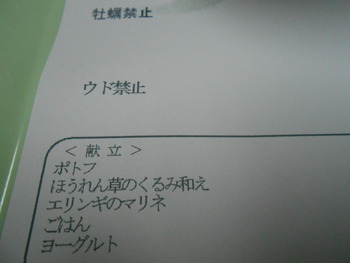 牡蠣禁止
ウド禁止
＜献立＞
ポトフ
ほうれん草のくるみ和え
エリンギのマリネ
ごはん
ヨーグルト